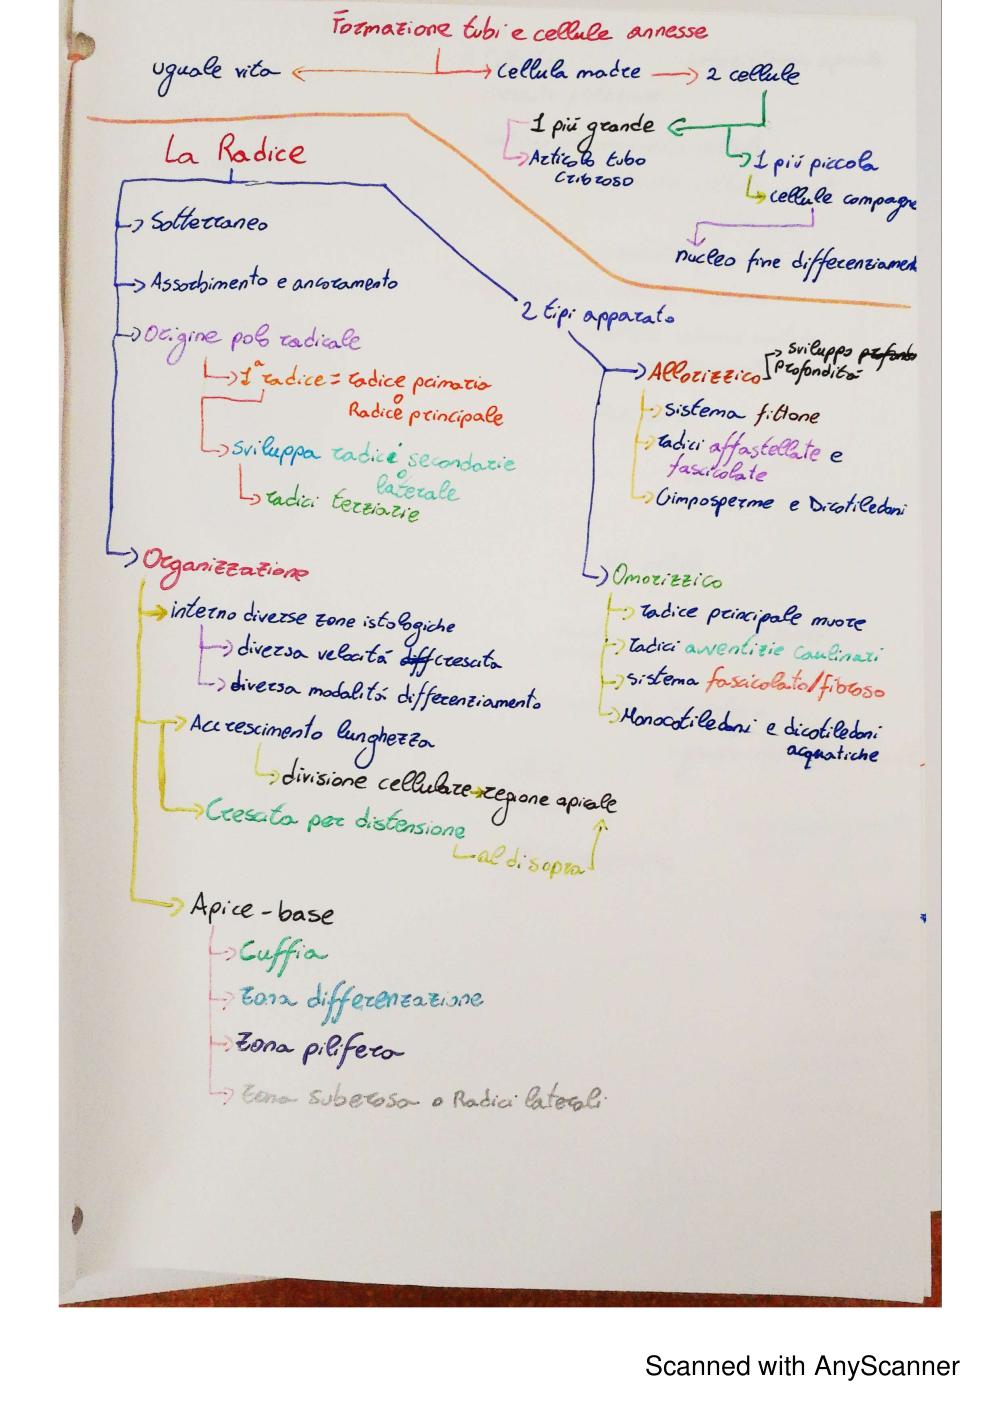 Formazione tubi e cellule annesse
uguale vita
cellula madre
2 cellule
1 più grande
Articolo tubo
cribroso
1 più piccola
cellule compagne
nucleo fine differenziament
La Radice
Sotterraneo
Assorbimento e ancoramento
Origine polo radicale
1ª radice = radice primaria
o
Radice principale
sviluppa radici secondarie
o
laterale
radici terziarie
2 tipi apparato
Allorizzico
sviluppo profondo
profondità
sistema fittone
radici affastellate e
fascicolate
Gimposperme e Dicotiledoni
Omorizzico
radice principale muore
radici avventizie caulinari
sistema fascicolato/fibroso
Monocotiledoni e dicotiledoni
acquatiche
Organizzazione
interno diverse zone istologiche
diversa velocità diff crescita
diversa modalità differenziamento
Accrescimento lunghezza
divisione cellulare regione apicale
Crescita per distensione
al di sopra
Apice-base
Cuffia
Zona differenzazione
Zona pilifera
Zona suberosa o Radici laterali
Scanned with AnyScanner